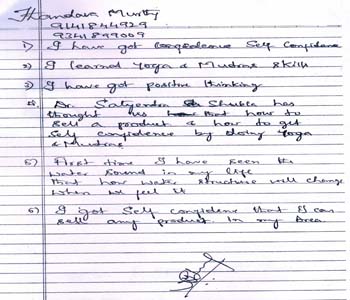 Murthy
9141844929
9341899009
1) I have got Self Confidence
2) I learned Yoga & Mudras skills
3) I have got positive thinking
4. Dr. Satyendra Shukla has
thought us that how to
sell a product & how to get
Self confidence by doing Yoga
& Mudras
5) First time I have seen the
water sound in my life
that how water structure will change
when we feel it
6) I got Self confidence that I can
sell any product in my Area